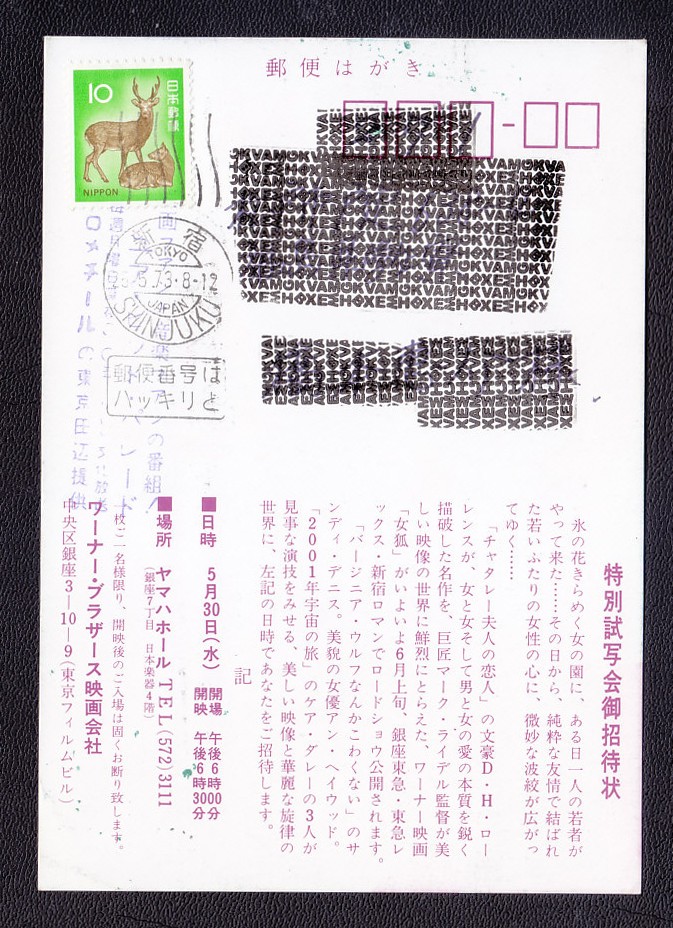 郵便はがき
10
日本郵便
NIPPON
新宿
TOKYO
5.73.8-12
JAPAN
SHINJUKU
郵便番号は
ハッキリと
の番組!
の東京田辺提供
特別試写会御招待状
氷の花きらめく女の園に、ある日一人の若者が
やって来た……その日から、純粋な友情で結ばれ
た若いふたりの女性の心に、微妙な波紋が広がっ
てゆく……
「チャタレー夫人の恋人」の文豪D・H・ロー
レンスが、女と女そして男と女の愛の本質を鋭く
描破した名作を、巨匠マーク・ライデル監督が美
しい映像の世界に鮮烈にとらえた、ワーナー映画
「女狐」がいよいよ6月上旬、銀座東急・東急レ
ックス・新宿ロマンでロードショウ公開されます。
「バージニア・ウルフなんかこわくない」のサ
ンディ・デニス。美貌の女優アン・ヘイウッド。
「2001年宇宙の旅」のケア・ダレーの3人が
見事な演技をみせる、美しい映像と華麗な旋律の
世界に、左記の日時であなたをご招待します。
記
■日時 5月30日(水) 開場 午後6時00分
開映 午後6時30分
■場所 ヤマハホール TEL(572)3111
(銀座7丁目 日本楽器4階)
一枚ご一名様限り、開映後のご入場は固くお断り致します。
ワーナー・ブラザース映画会社
中央区銀座3-10-9(東京フィルムビル)